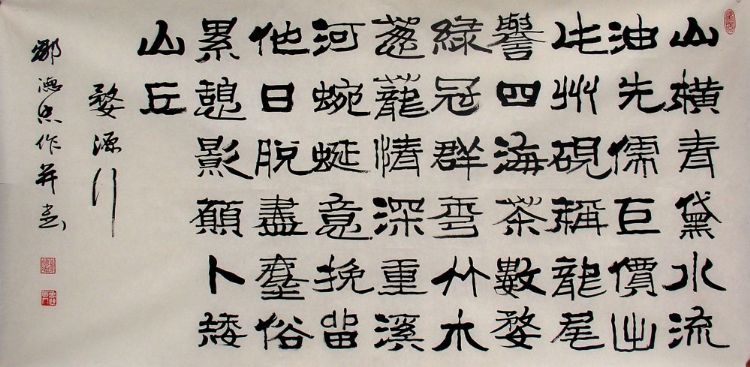 山橫青黛水流
油先儒巨價出
此州硯稱龍尾
譽四海茶數婺
綠冠群竹木
蔥蘢情深重溪
河蜿蜒意挽留
他日脫盡塵俗
累憩影願卜矮
山丘
婺源行
鄒德忠作并書